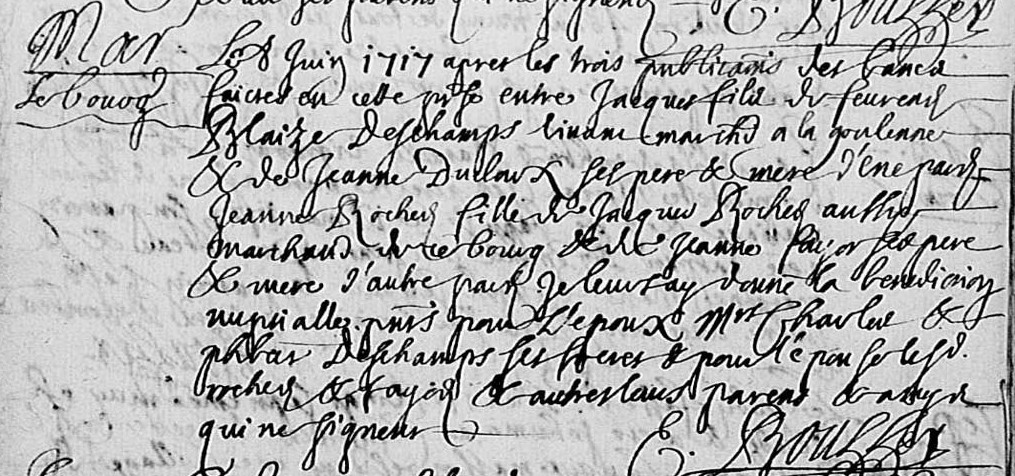 qui ne signent
E. Rouzier
Mar
Le bourg
Le 8 Juin 1717 apres les trois publicaons des bancs
faictes en cette psse entre Jacques fils de feu
Blaize Deschamps vivant marchd a la
& de Jeanne Dulaux ses pere & mere d'une part &
Jeanne Rocher fille de Jacques Rocher aussy
marchand de ce bourg & de Jeanne fayor ses pere
& mere d'autre part Je leur ay donné la benediction
nuptialle pnts pour L'epoux Mrs Charles &
Deschamps ses freres & pour l'epouse lesd.
rocher & fayor & autres leurs parens & amys
qui ne signent
E. Rouzier